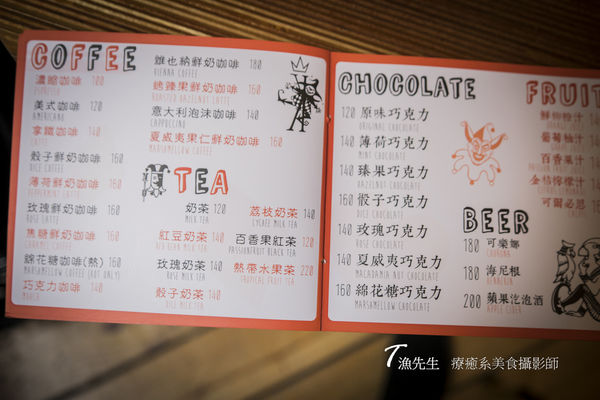 COFFEE
濃縮咖啡 100
ESPRESSO
美式咖啡 120
AMERICANO
拿鐵咖啡 140
LATTE
骰子鮮奶咖啡 160
DICE COFFEE
薄荷鮮奶咖啡 160
PEPPERMINT LATTE
玫瑰鮮奶咖啡 160
ROSE LATTE
焦糖鮮奶咖啡 160
CARAMEL COFFEE
錦花糖咖啡(熱) 160
MARSHMELLOW COFFEE (HOT ONLY)
巧克力咖啡 140
MOCHA
維也納鮮奶咖啡 180
VIENNA COFFEE
臻果鮮奶咖啡 160
ROASTED HAZELNUT LATTE
意大利泡沫咖啡 140
CAPPUCCINO
夏威夷果仁鮮奶咖啡 160
MARSMELLOW COFFEE
TEA
奶茶 120
MILK TEA
紅豆奶茶 140
RED BEAN MILK TEA
玫瑰奶茶 140
ROSE MILK TEA
骰子奶茶 140
DICE MILK TEA
荔枝奶茶 140
LYCHEE MILK TEA
百香果紅茶 140
PASSIONFRUIT BLACK TEA
熱帶水果茶 220
TROPICAL FRUIT TEA
CHOCOLATE
120 原味巧克力
ORIGINAL CHOCOLATE
140 薄荷巧克力
MINT CHOCOLATE
140 臻果巧克力
HAZELNUT CHOCOLATE
160 骰子巧克力
DICE CHOCOLATE
140 玫瑰巧克力
ROSE CHOCOLATE
140 夏威夷巧克力
MACADAMIA NUT CHOCOLATE
160 綿花糖巧克力
MARSHMELLOW CHOCOLATE
FRUIT
鮮柳橙汁
葡萄柚汁
百香果汁
金桔檸檬汁
可爾必思
BEER
180 可樂娜
CORONA
180 海尼根
HENEKEN
200 蘋果泡酒
APPLE CIDER
T漁先生 療癒系美食攝影師